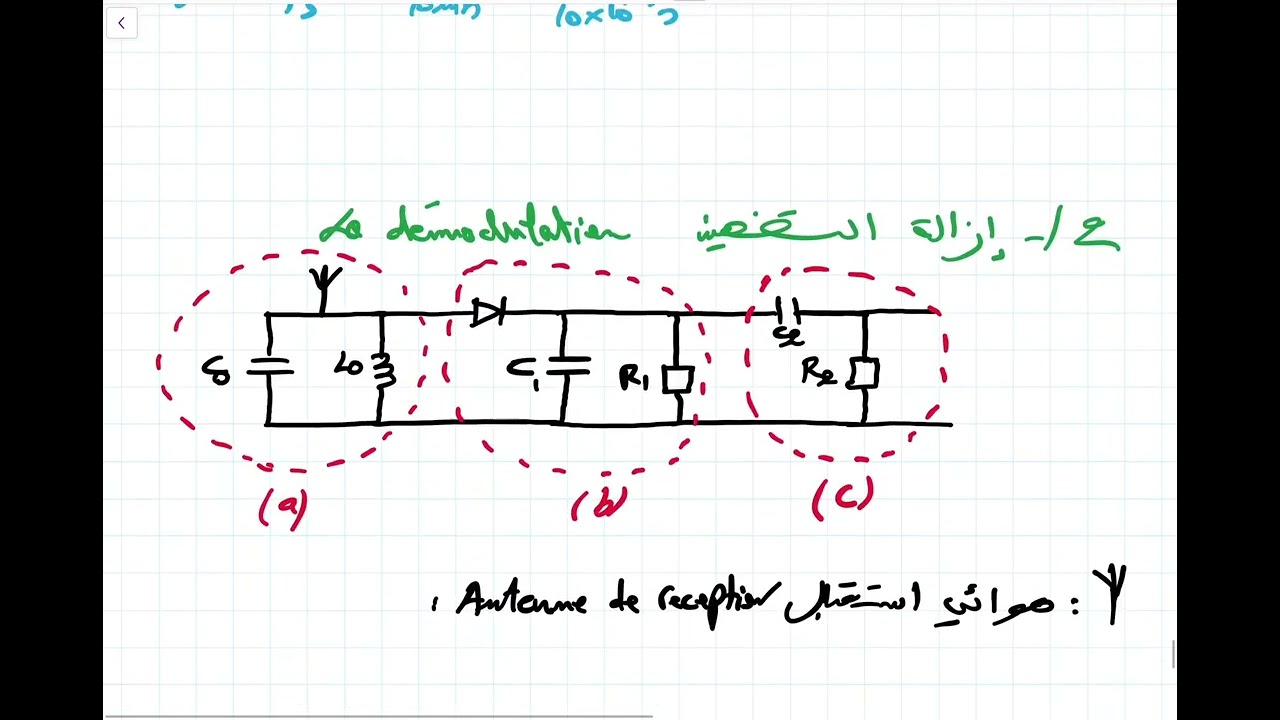 10×10⁻⁵
ع/- إزالة التضمين La démodulation
C₀ L₀ C₁ R₁ C₂ R₂
(a) (b) (c)
: هوائي استقبال Antenne de reception .